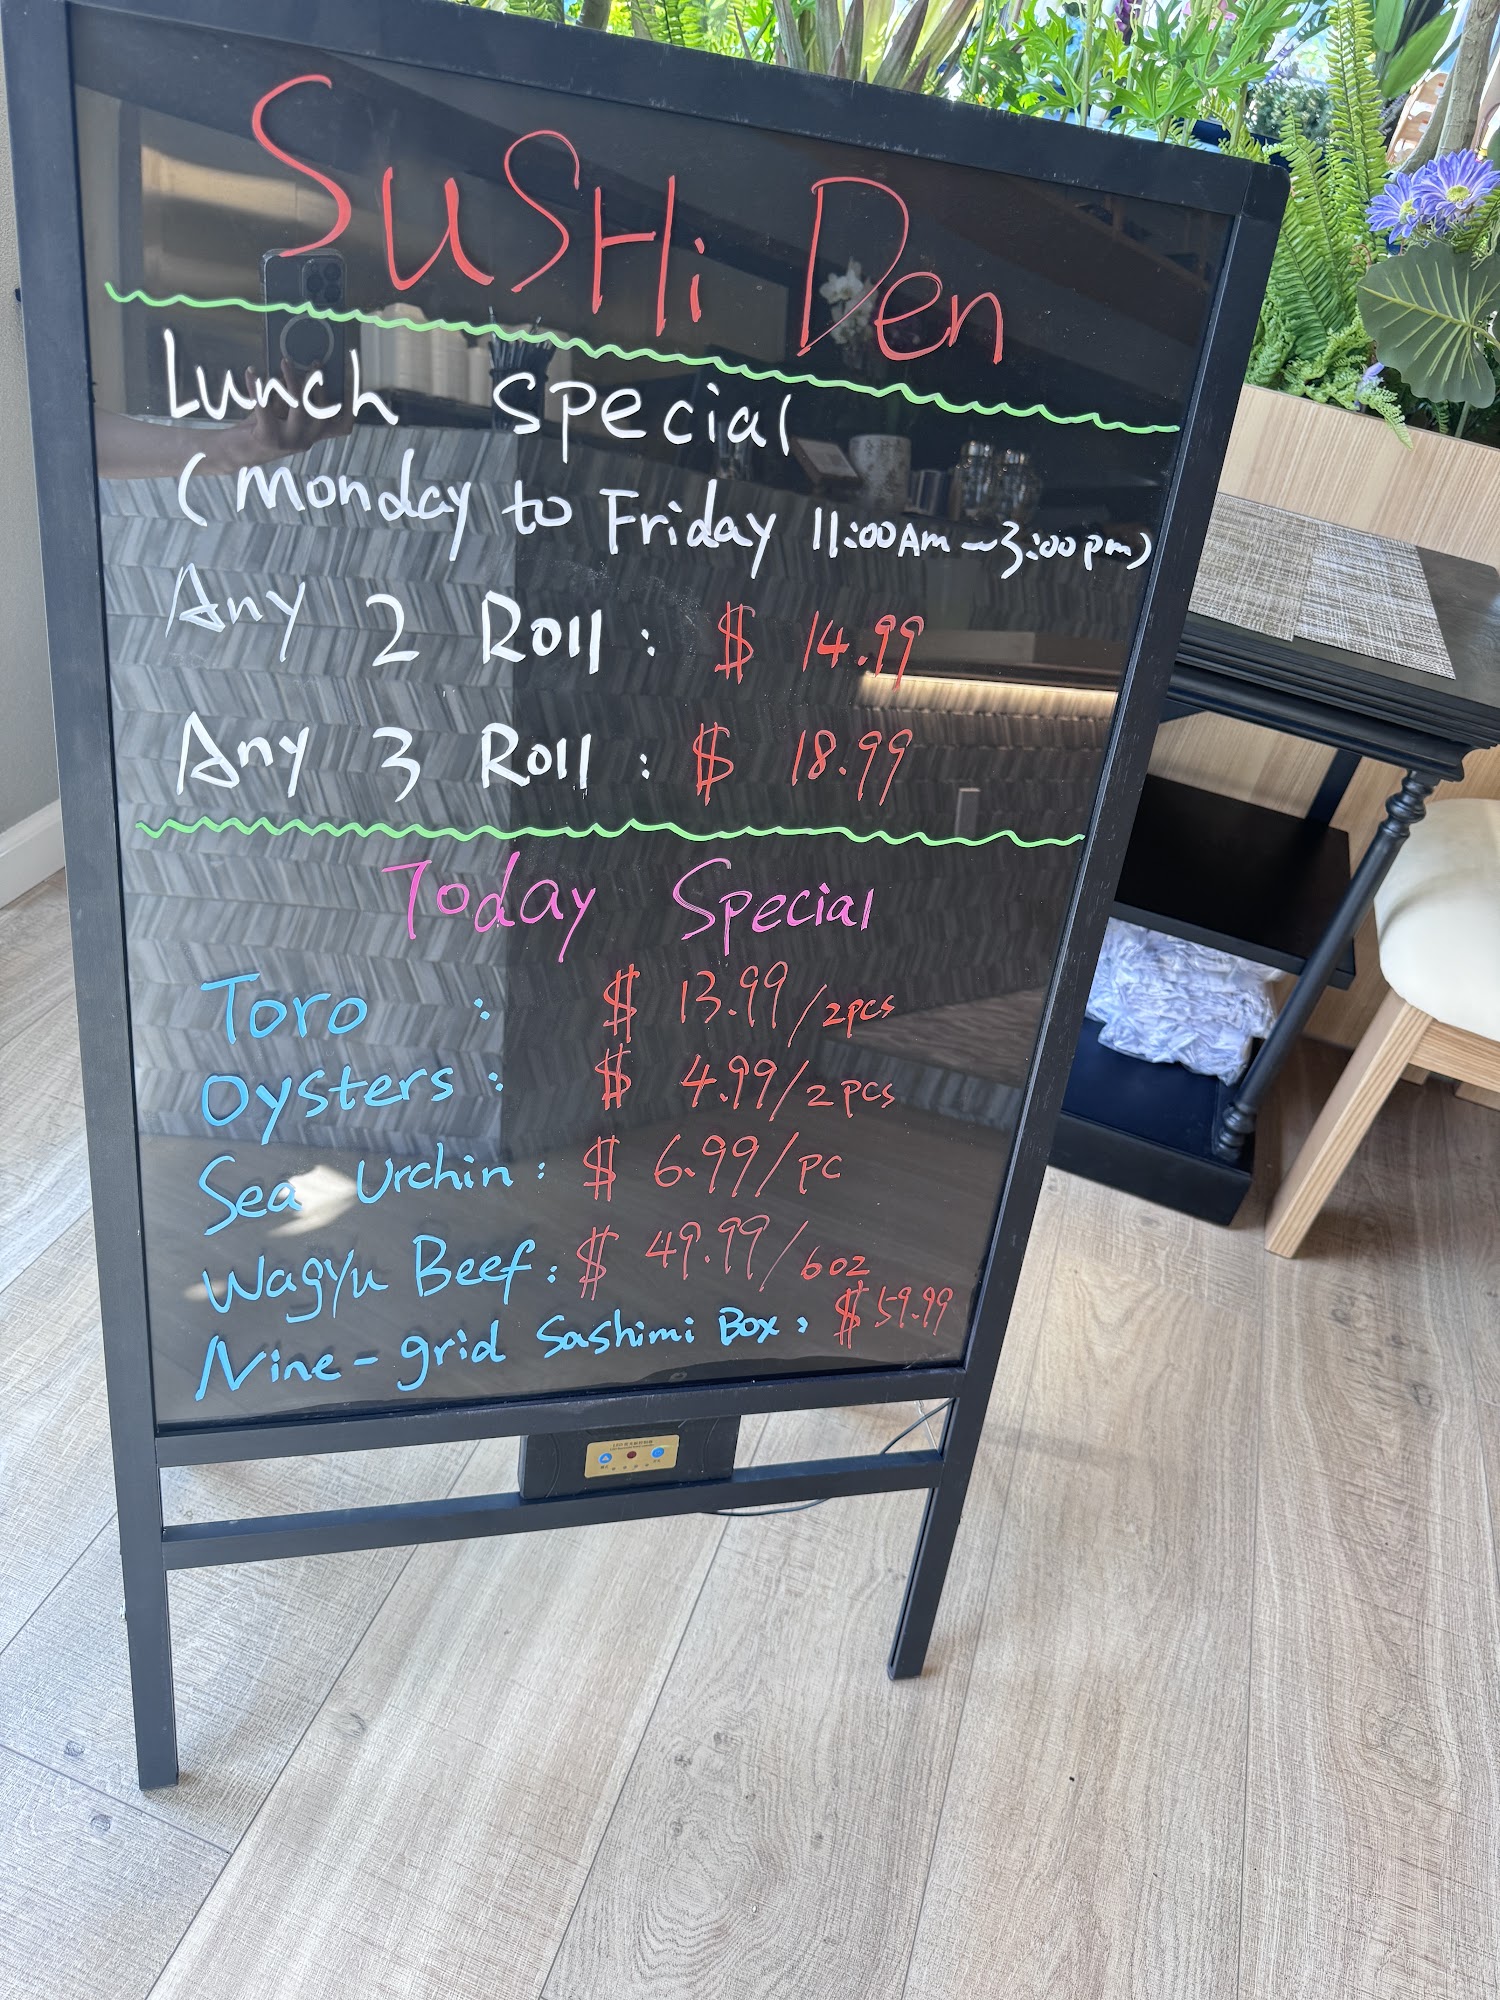 SuSHi Den
Lunch special
(Monday to Friday 11:00Am ~ 3:00pm)
Any 2 Roll : $ 14.99
Any 3 Roll : $ 18.99
Today Special
Toro : $ 13.99/2pcs
Oysters : $ 4.99/2pcs
Sea Urchin : $ 6.99/pc
Wagyu Beef : $ 49.99/6oz
Nine-grid Sashimi Box : $59.99